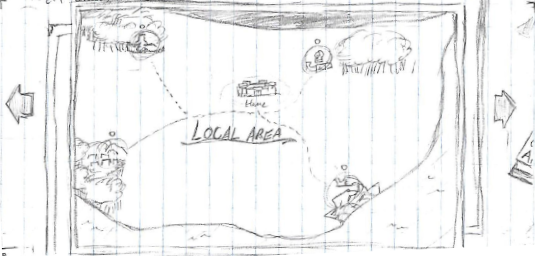 Home
LOCAL AREA